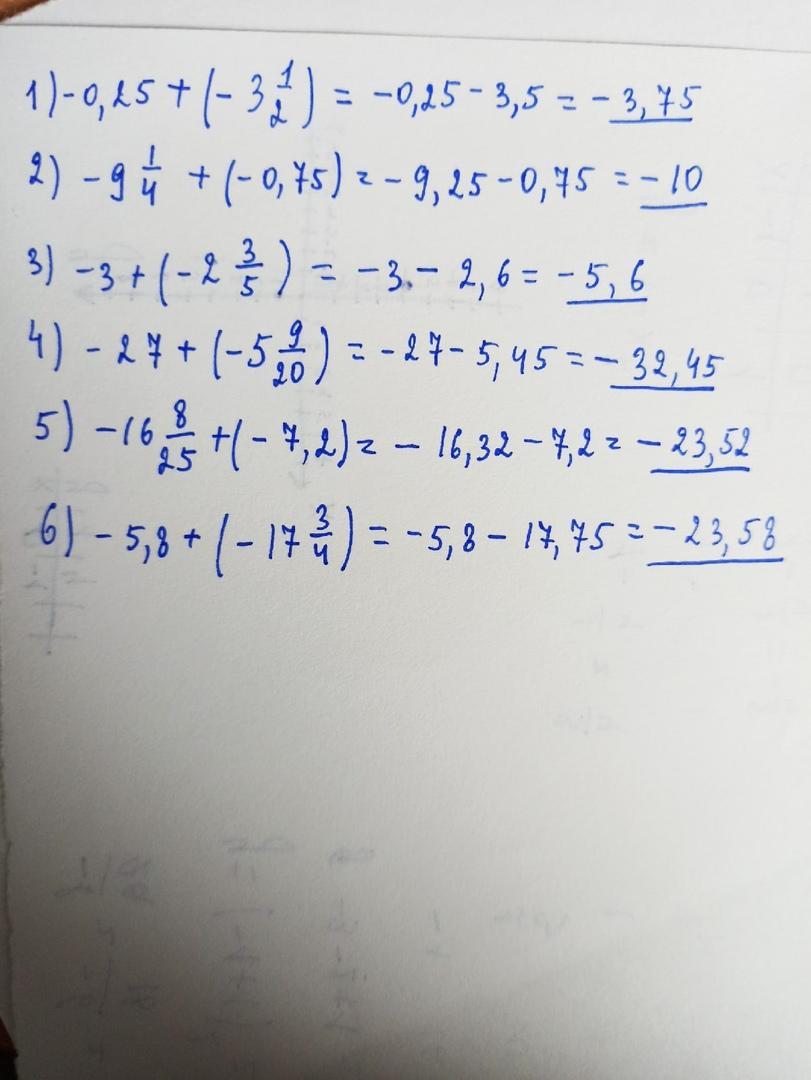 1) -0,25 + (-3 1/2) = -0,25 - 3,5 = -3,75
2) -9 1/4 + (-0,75) = -9,25 - 0,75 = -10
3) -3 + (-2 3/5) = -3 - 2,6 = -5,6
4) -27 + (-5 9/20) = -27 - 5,45 = -32,45
5) -16 8/25 + (-7,2) = -16,32 - 7,2 = -23,52
6) -5,8 + (-17 3/4) = -5,8 - 17,75 = -23,58